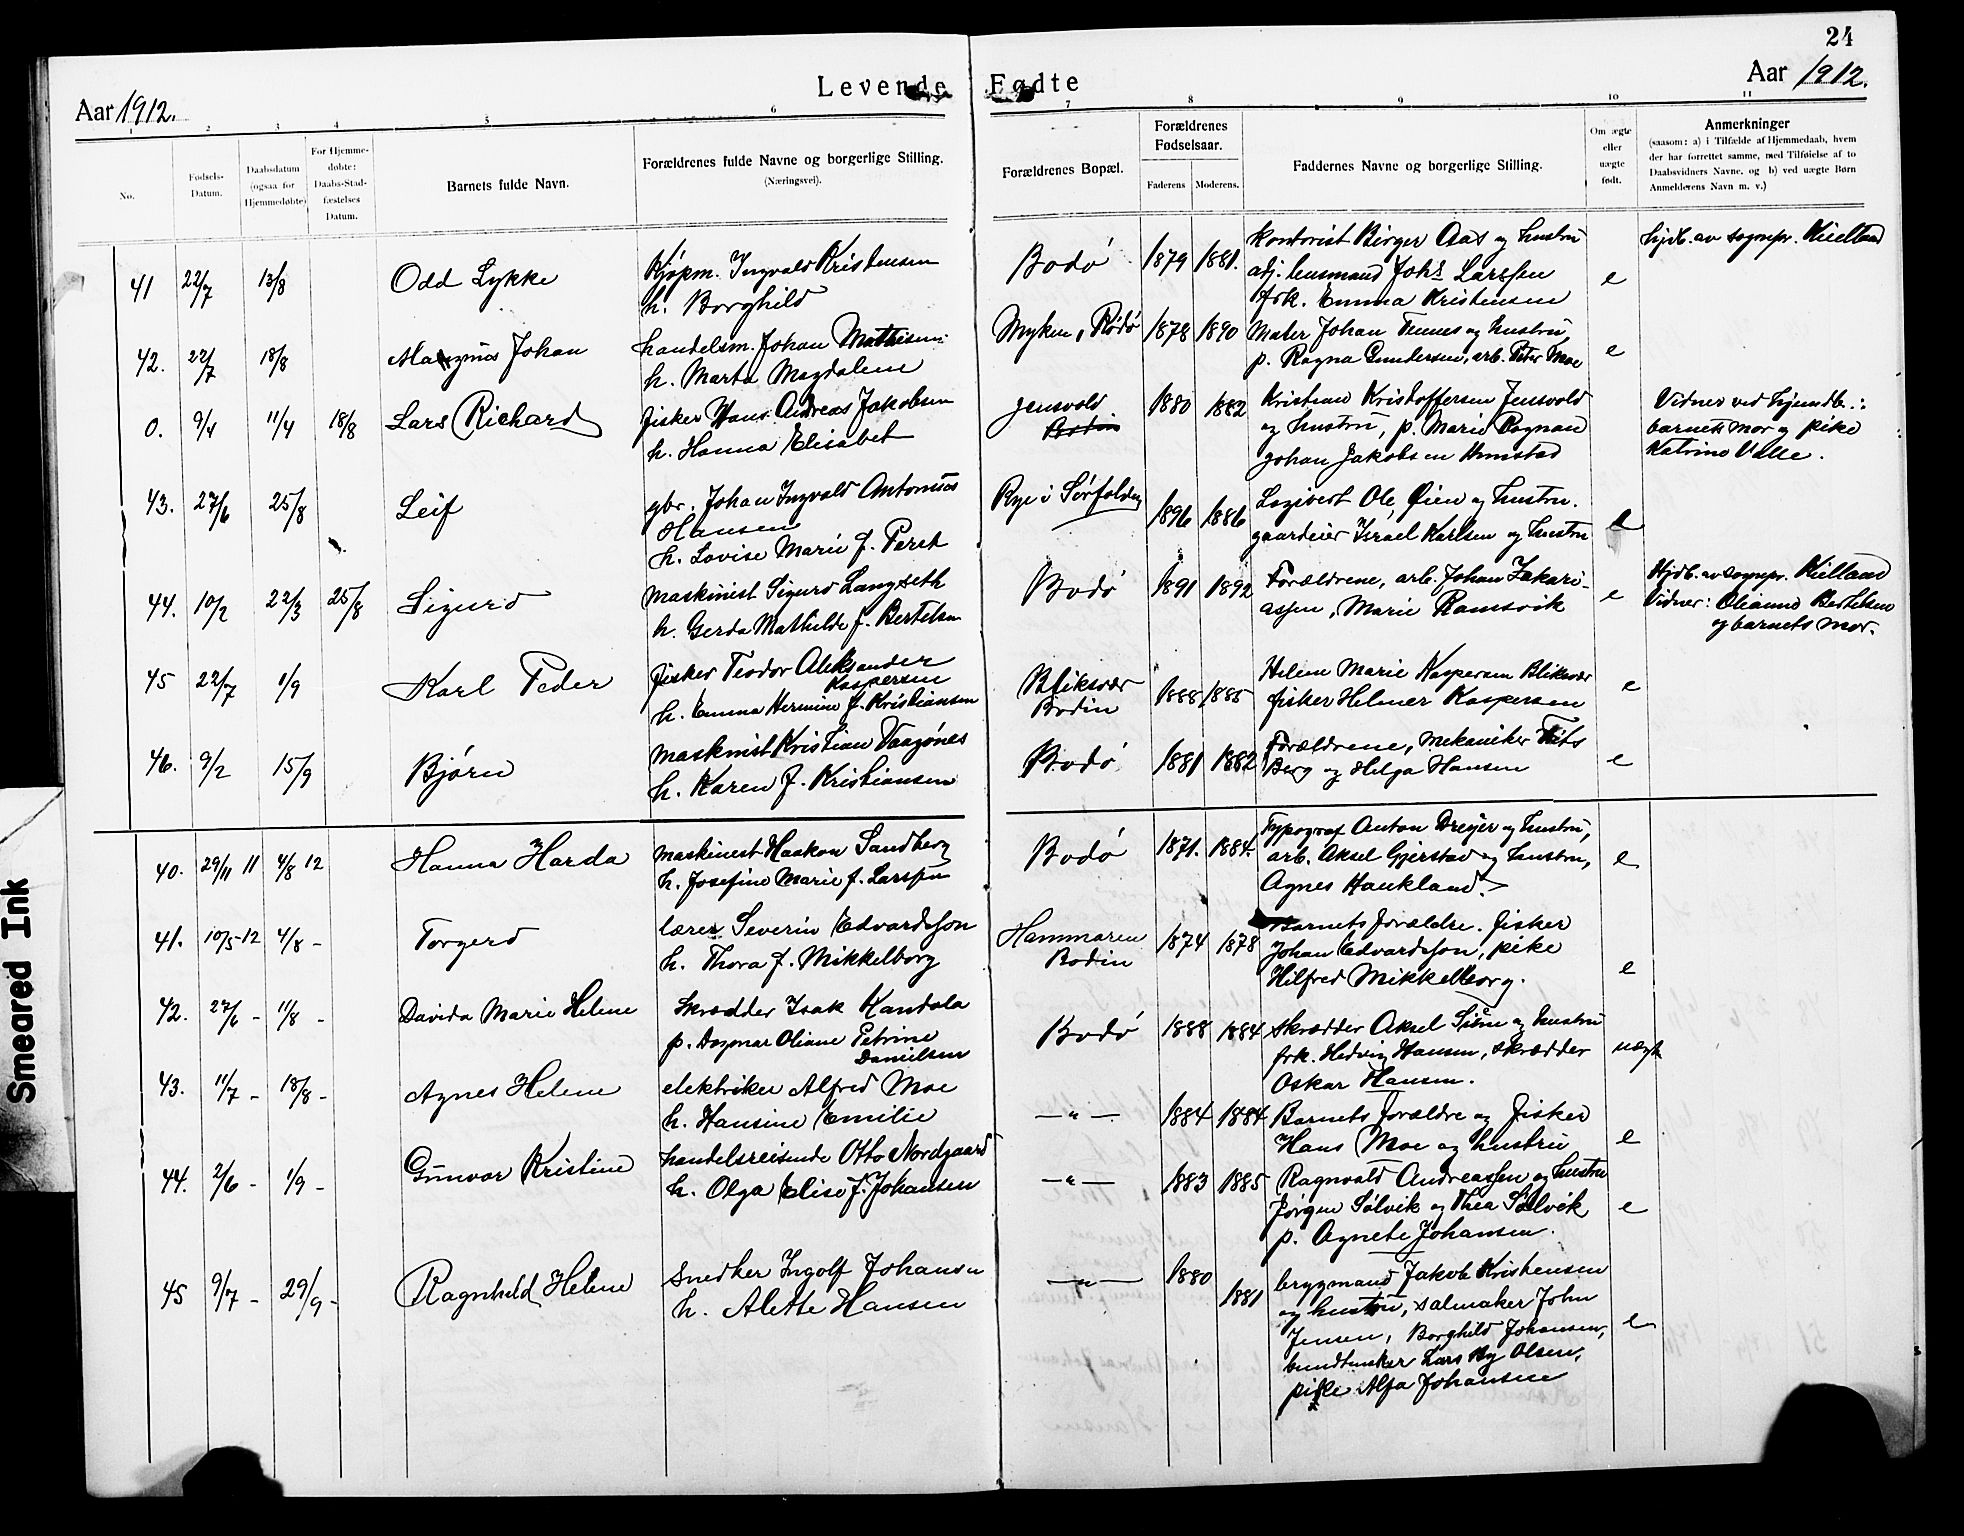 24
Levende Fødte
Aar 1912.
Aar 1912.
1 2 3 4 5 6 7 8 9 10 11
No.
Fødsels-
Datum.
Daabsdatum
(ogsaa for
Hjemmedøbte)
For Hjemme-
døbte:
Daabs-Stad-
fæstelses
Datum.
Barnets fulde Navn.
Forældrenes fulde Navne og borgerlige Stilling.
(Næringsvei).
Forældrenes Bopæl.
Forældrenes
Fødselsaar.
Faderens Moderens.
Faddernes Navne og borgerlige Stilling.
Om ægte
eller
uægte
født.
Anmerkninger
(saasom: a) i Tilfælde af Hjemmedaab, hvem
der har forrettet samme, med Tilføielse af to
Daabsvidners Navne. og b) ved uægte Børn
Anmelderens Navn m. v.)
41 22/7 13/8 Odd Lykke
Kjøpm. Ingvald Kristensen
h. Borghild
Bodø 1879 1881.
Kontorist Birger Aas og hustru
adj. lensmand Johs Larssen
frk. Emma Kristensen
e
hjdb. av sognepr. Kielland
42. 22/7 18/8 Magnus Johan
handelsm. Johan Mathisen
h. Marta Magdalene
Myken, Rødø 1878 1890
Mater Johan Tennes og hustru,
p. Ragna Gundersen, arb. Peter Moe
e
0. 9/4 11/4 18/8 Lars Richard
fisker Hans Andreas Jakobsen
h. Hanna Elisabet
Jensvold
Bodin
1880 1882
Kristian Kristoffersen Jensvold
og hustru, p. Marie Rognan
Johan Jakobsen
Vidner ved hjemdb.:
barnets mor og pike
Katrine Valle.
43. 27/6 25/8 Leif
gbr. Johan Ingvald Antonius
Hansen
h. Lovise Marie f. Peret
Rye i Sørfolden 1896 1886
Logivert Ole Øien og hustru.
gaardeier Israel Karlsen og hustru
e
44. 10/2 22/3 25/8 Sigurd
Maskinist Sigurd Langseth
h. Gerda Mathilde f. Bertelsen
Bodø 1891 1892
Forældrene, arb. Johan Zakari-
assen, Marie Ramsvik
e
Hjdb. av sognepr. Kielland
Vidner: Olianna Bertelsen
og barnets mor.
45 22/7 1/9 Karl Peder
fisker Teodor Aleksander
Kaspersen
h. Emma Hermine f. Kristiansen
Bliksvær
Bodin
1888 1885
Helene Marie Kaspersen Bliksvær
fisker Helmer Kaspersen
e
46. 9/2 15/9 Bjørn
Maskinist Kristian Vaagønes
h. Karen f. Kristiansen
Bodø 1881 1882
Forældrene, mekaniker
Berg og Helga Hansen
e
40. 29/11 11 4/8 12 Hanna Harda
Maskinist Haakon Sandberg
h. Josefine Marie f. Larssen
Bodø 1871. 1884.
Typograf Anton Dreyer og hustru,
arb. Aksel Gjerstad og hustru,
Agnes Haukland.
e
41. 10/5-12 4/8 - Torgerd
lærer Severin Edvardsson
h. Thora f. Mikkelborg
Hammaren
Bodin
1874 1878
Barnets forældre. fisker
Johan Edvardsson, pike
Hilfred Mikkelborg.
e
42. 27/6 - 11/8 - Davida Marie Helene
Skrædder Isak Kandola
p. Dagmar Oliane Petrine
Danielsen
Bodø 1888 1884
Skrædder Aksel og hustru
frk. Hedvig Hansen, skrædder
Oskar Hansen.
uægt
43. 11/7 - 18/8 - Agnes Helene
elektriker Alfred Moe
h. Hansine Emilie
—"— 1884 1884
Barnets forældre og fisker
Hans Moe og hustru
e
44. 2/6 - 1/9 - Gunvor Kristine
handelsreisende Otto Nordgaard
h. Olga Elise f. Johansen
—"— 1883 1885
Ragnvald Andreassen og hustru
Jørgen Sølvik og Thea Sølvik
p. Agnete Johansen.
e
45 9/7 - 29/9 - Ragnhild Helene
Snedker Ingolf Johansen
h. Alette Hansen
—"— 1880 1881
brygmand Jakob Kristensen
og hustru, salmaker John
Jensen, Borghild Johansen,
bundtmaker Lars By Olsen,
pike Alfa Johansen
e
Smeared Ink